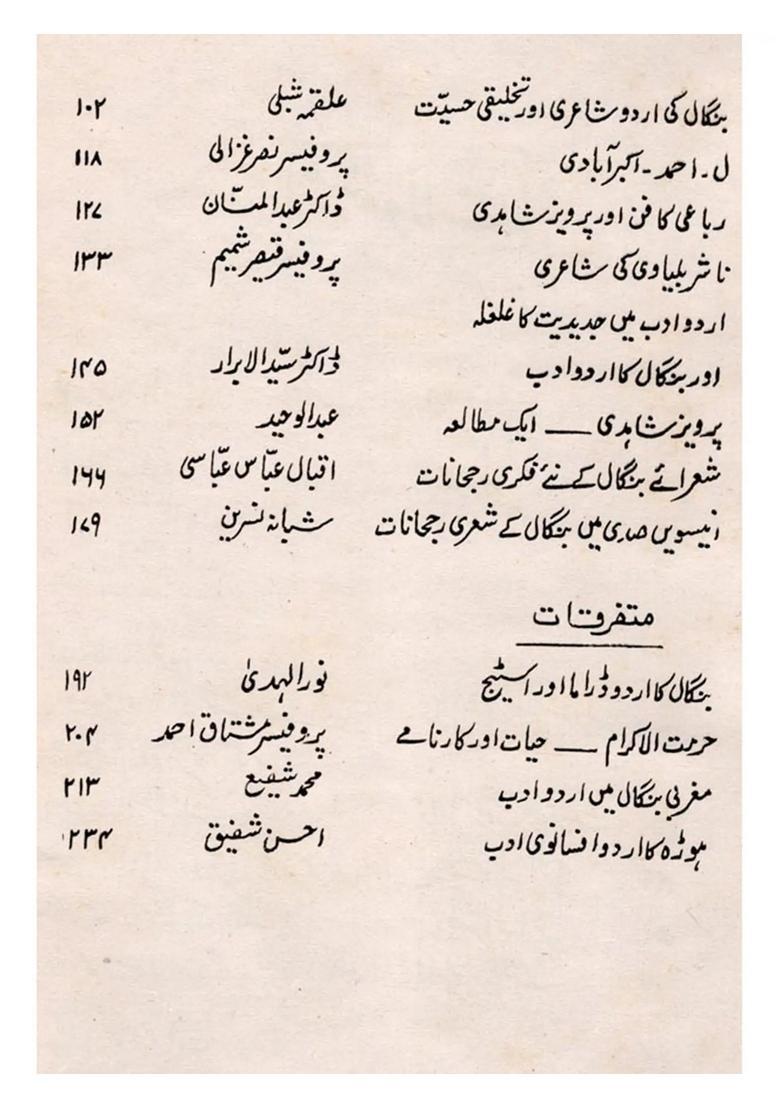 بنگال کی اردو شاعری اور تخلیقی حسیّت علقمہ شبلی ۱۰۲
ل۔ احمد۔ اکبرآبادی پروفیسر نصر غزالی ۱۱۸
رباعی کا فن اور پرویز شاہدی ڈاکٹر عبدالمنّان ۱۲۷
ناشر بلیاوی کی شاعری پروفیسر قیصر شمیم ۱۳۳
اردو ادب میں جدیدیت کا غلغلہ
اور بنگال کا اردو ادب ڈاکٹر سیّد الابرار ۱۴۵
پرویز شاہدی ـــــ ایک مطالعہ عبدالوحید ۱۵۲
شعرائے بنگال کے نئے فکری رجحانات اقبال عبّاس عبّاسی ۱۶۶
انیسویں صدی میں بنگال کے شعری رجحانات شبانہ نسرین ۱۷۹
متفرقات
بنگال کا اردو ڈراما اور اسٹیج نورالہدیٰ ۱۹۲
حرمت الاکرام ـــــ حیات اور کارنامے پروفیسر مشتاق احمد ۲۰۴
مغربی بنگال میں اردو ادب محمد شفیع ۲۱۳
ہوڑہ کا اردو افسانوی ادب احسن شفیق ۲۳۴